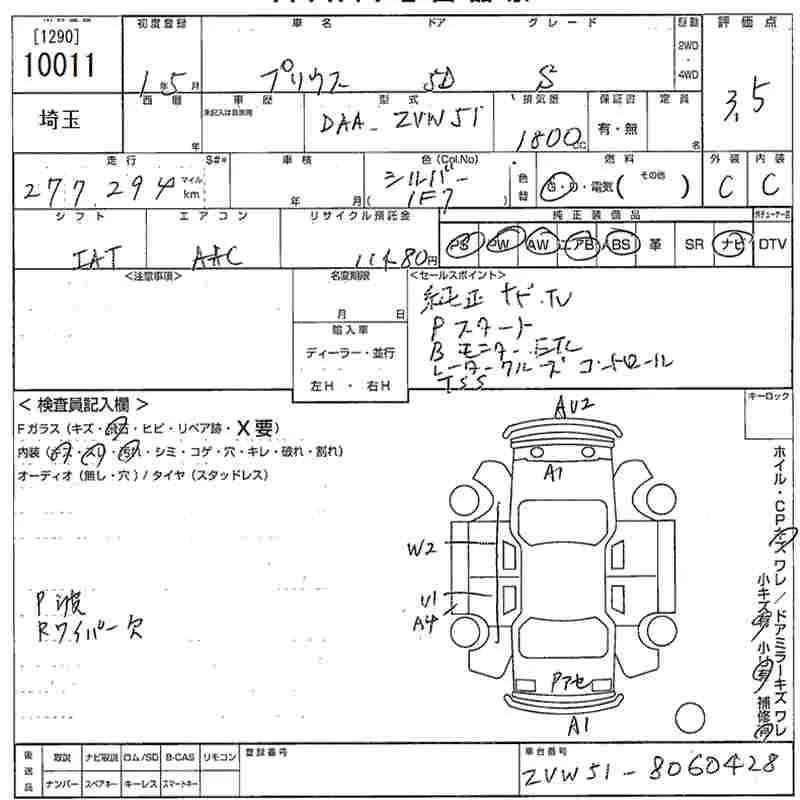 [1290]
10011
初度登録 車名 ドア グレード 駆動 評価点
1年5月 プリウス 5D S 2WD 4WD 3.5
埼玉
西暦 車歴 型式 排気量 保証書 定員
年 未記入は自家用 DAA-ZVW51 1800cc 有・無 名
走行 S#* 車検 色(Col.No) 色替 燃料 外装 内装
277,294 マイル km 年 月 シルバー ( 1F7 ) G・D・電気( その他 ) C C
シフト エアコン リサイクル預託金 純正装備品
IAT AAC 円 PS PW AW エアB ABS 革 SR ナビ DTV
<注意事項> 名変期限 <セールスポイント>
月 日
輸入車
ディーラー・並行
左H ・ 右H
純正ナビ.TV
Pスタート
Bモニター.ETC
レーダークルーズコントロール
TSS
キーロック
< 検査員記入欄 >
Fガラス (キズ・飛石・ヒビ・リペア跡・X要)
内装 (キズ・スレ・汚れ・シミ・コゲ・穴・キレ・破れ・割れ)
オーディオ (無し・穴) / タイヤ (スタッドレス)
P波
Rワイパー欠
AU2
A1
W2
U1
A4
Pアセ
A1
ホイル・CPキズ ワレ / ドアミラーキズ ワレ
小キズ有 小凹有 補修有
後送品 取説 ナビ取説 ロム/SD B-CAS リモコン 登録番号 車台番号
ナンバー スペアキー キーレス スマートキー ZVW51-8060428